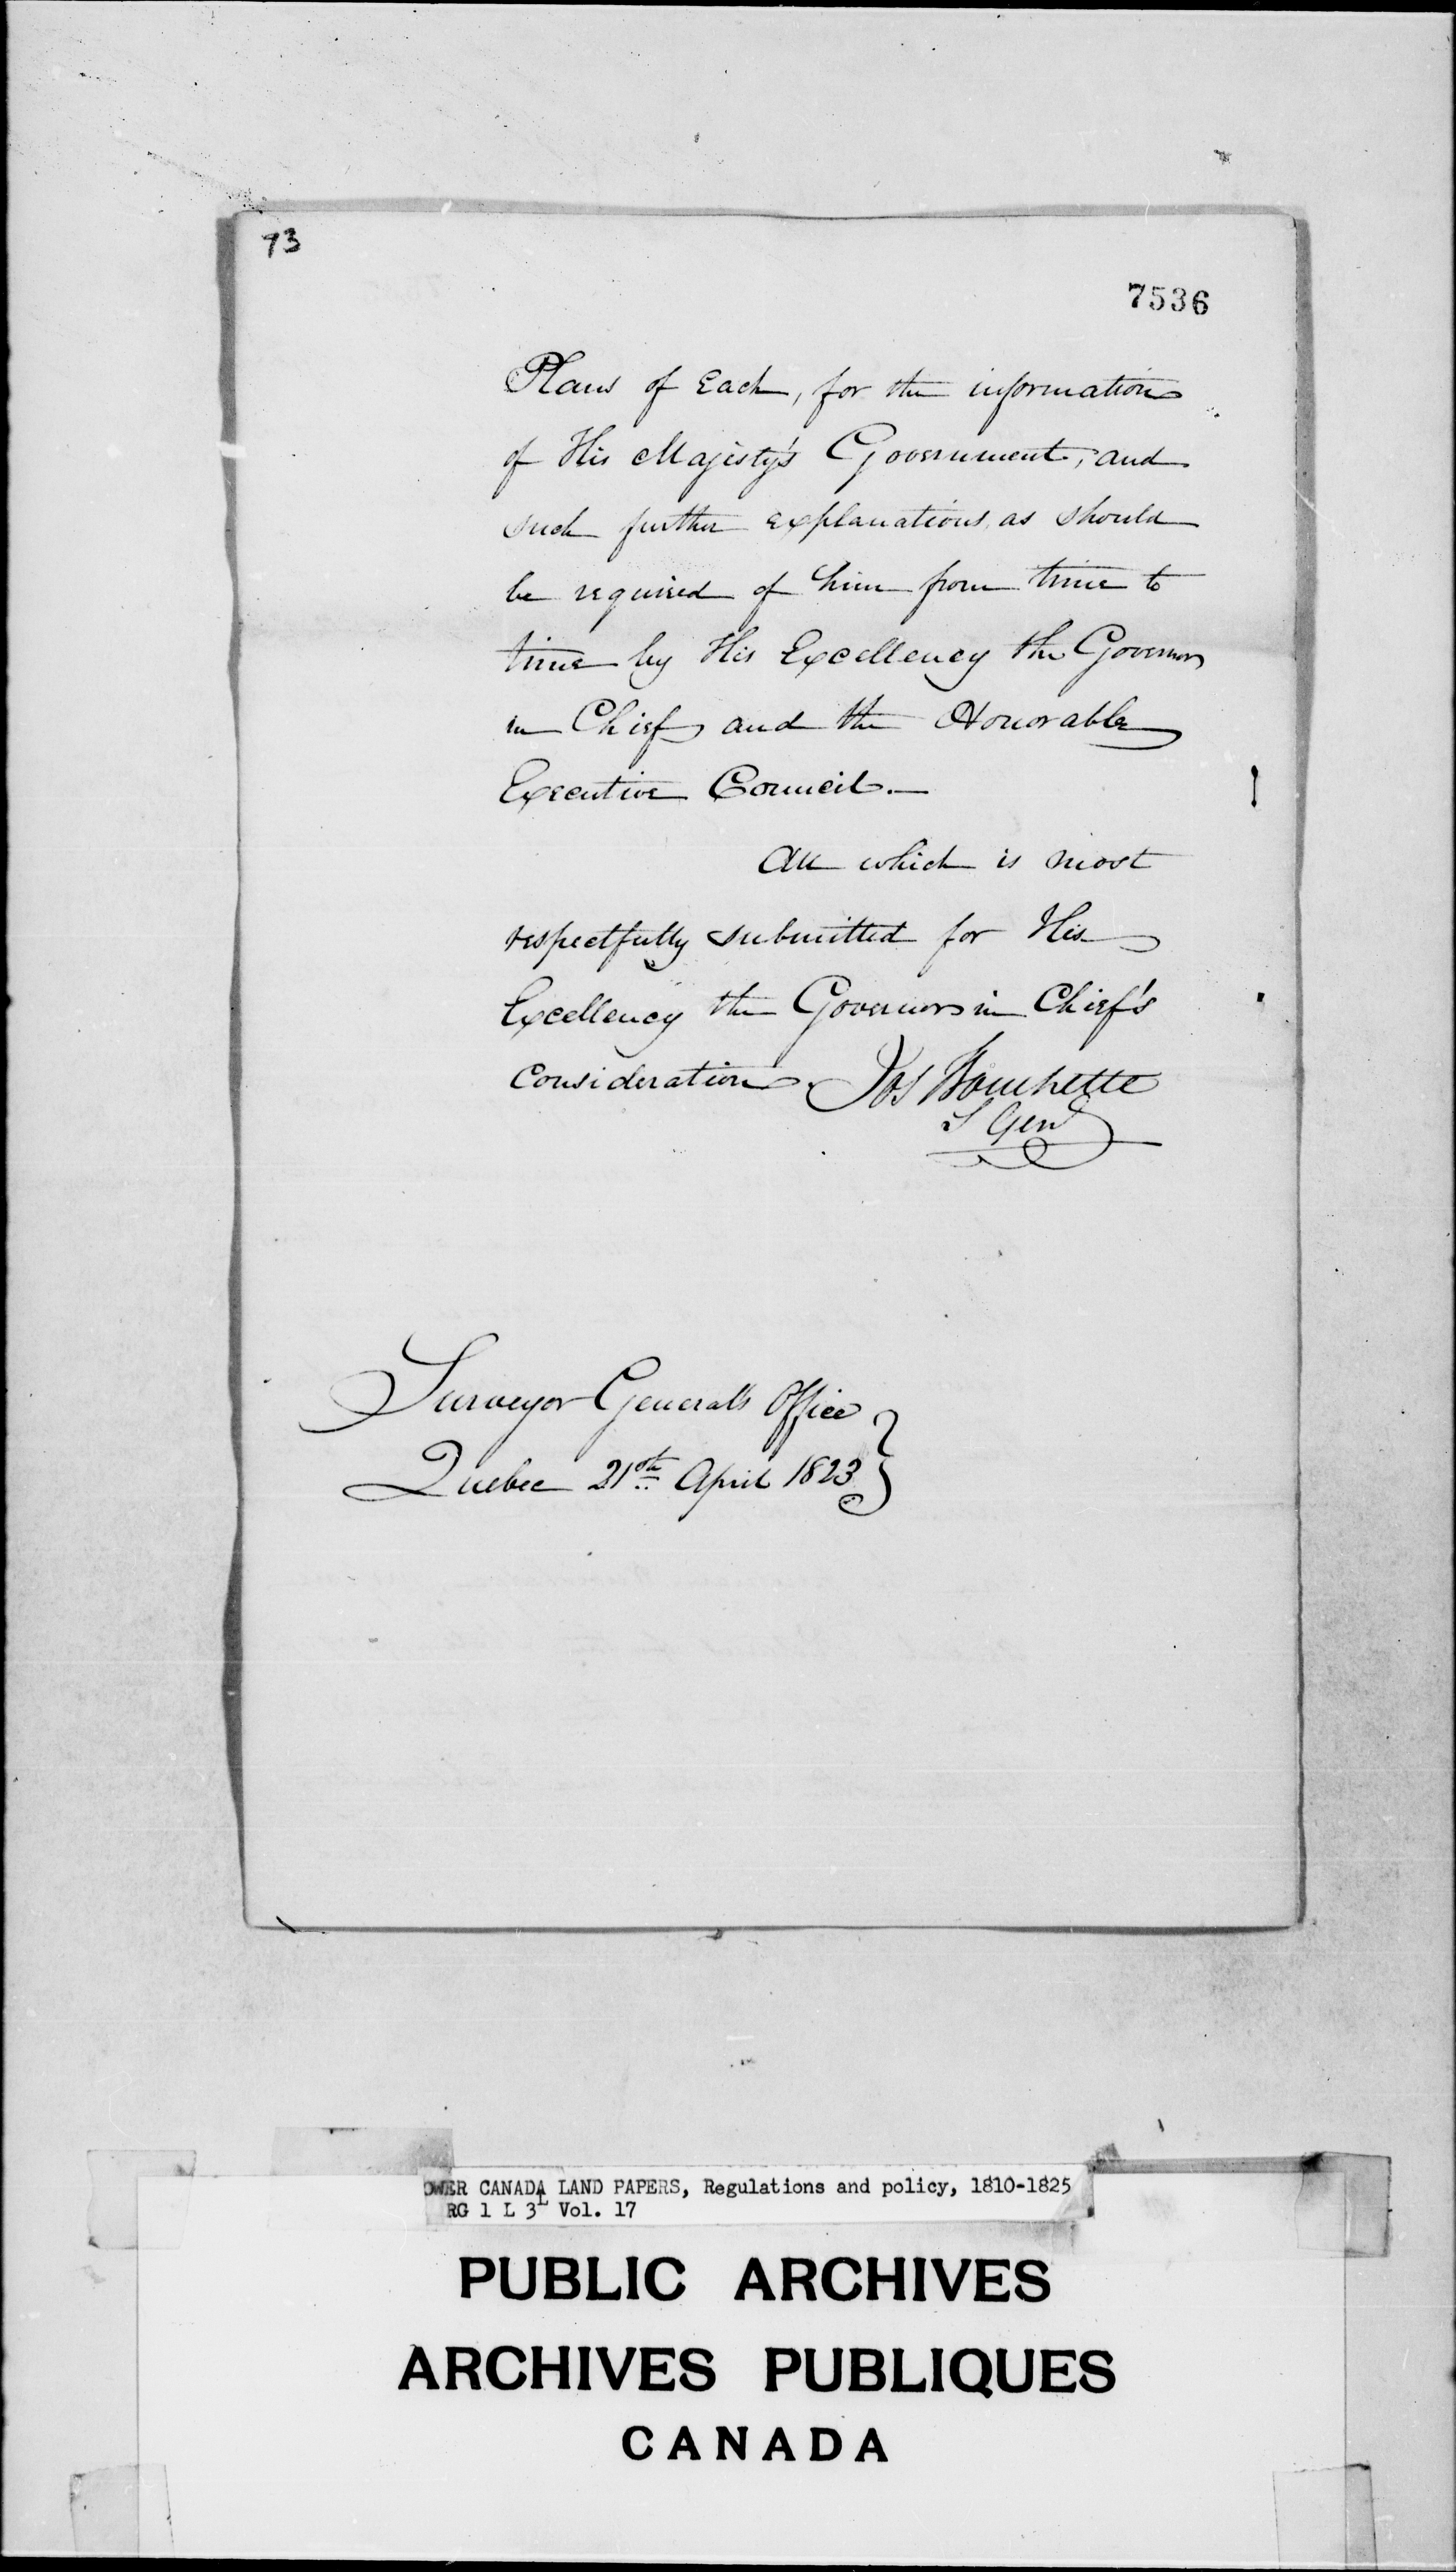 73
7536
Plans of Each, for the information
of His Majesty's Government, and
such further explanations, as should
be required of him from time to
time by His Excellency the Governor
in Chief and the Honorable
Executive Council.—
All which is most
respectfully submitted for His
Excellency the Governor in Chief's
Consideration. Jos Bouchette
S Genl
Surveyor General's Office
Quebec 21st April 1823
OWER CANADA LAND PAPERS, Regulations and policy, 1810-1825
RG 1 L 3L Vol. 17
PUBLIC ARCHIVES
ARCHIVES PUBLIQUES
CANADA